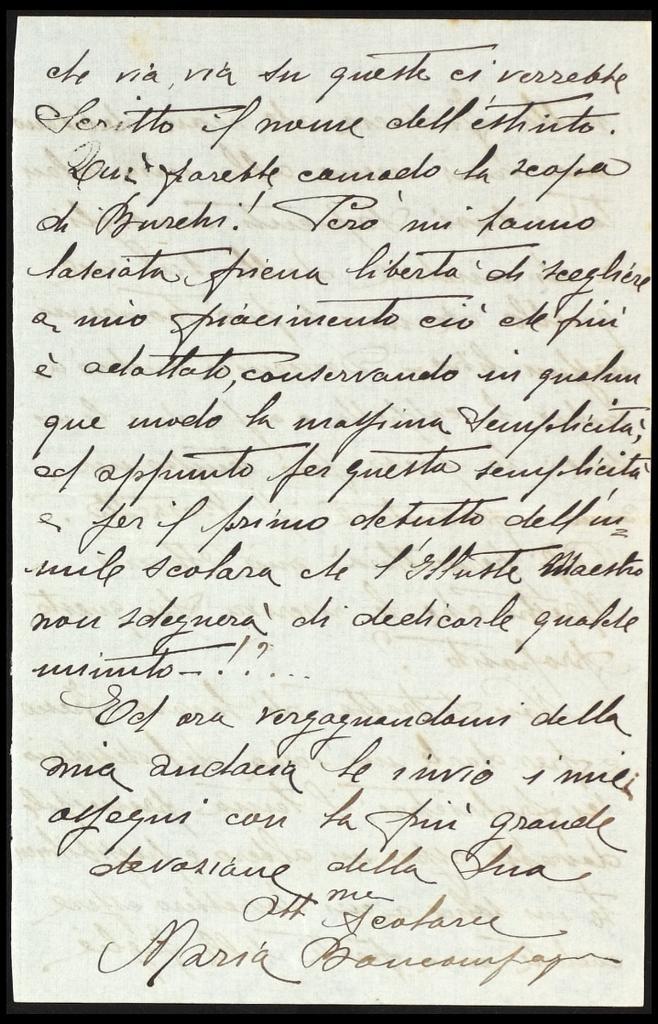 che via, via su queste ci verrebbe
scritto il nome dell'estinto.
Qui parebbe comodo la scopa
di Burchi! Però mi hanno
lasciata piena libertà di scegliere
a mio piacimento ciò che più
è adattato, conservando in qualun
que modo la massima semplicità,
ed appunto per questa semplicità
e per il primo debutto dell'u=
mile scolara che l'Illustre Maestro
non sdegnerà di dedicarle qualche
minuto—!?....
Ed ora vergognandomi della
mia audacia le invio i miei
ossequi con la più grande
devozione della Sua
me
Scolara
Maria Boncompagni